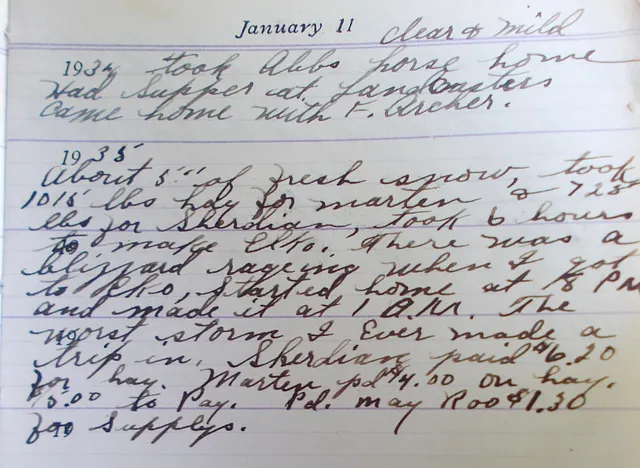 January 11 clear & mild
1934 took Abbs horse home
Had Supper at Landcasters
came home with F. Archer.
1935
About 5" of fresh snow, took
1015 lbs hay for marten & 725
lbs for Sherdian, took 6 hours
to make Elko. There was a
blizzard rageing when I got
to Elko, Started home at 8 PM
and made it at 1 A.M. The
worst storm I Ever made a
trip in. Sherdian paid $6.20
for hay. Marten pd $4.00 on hay.
5.00 to Pay. Pd. may Roo $1.30
for Supplys.